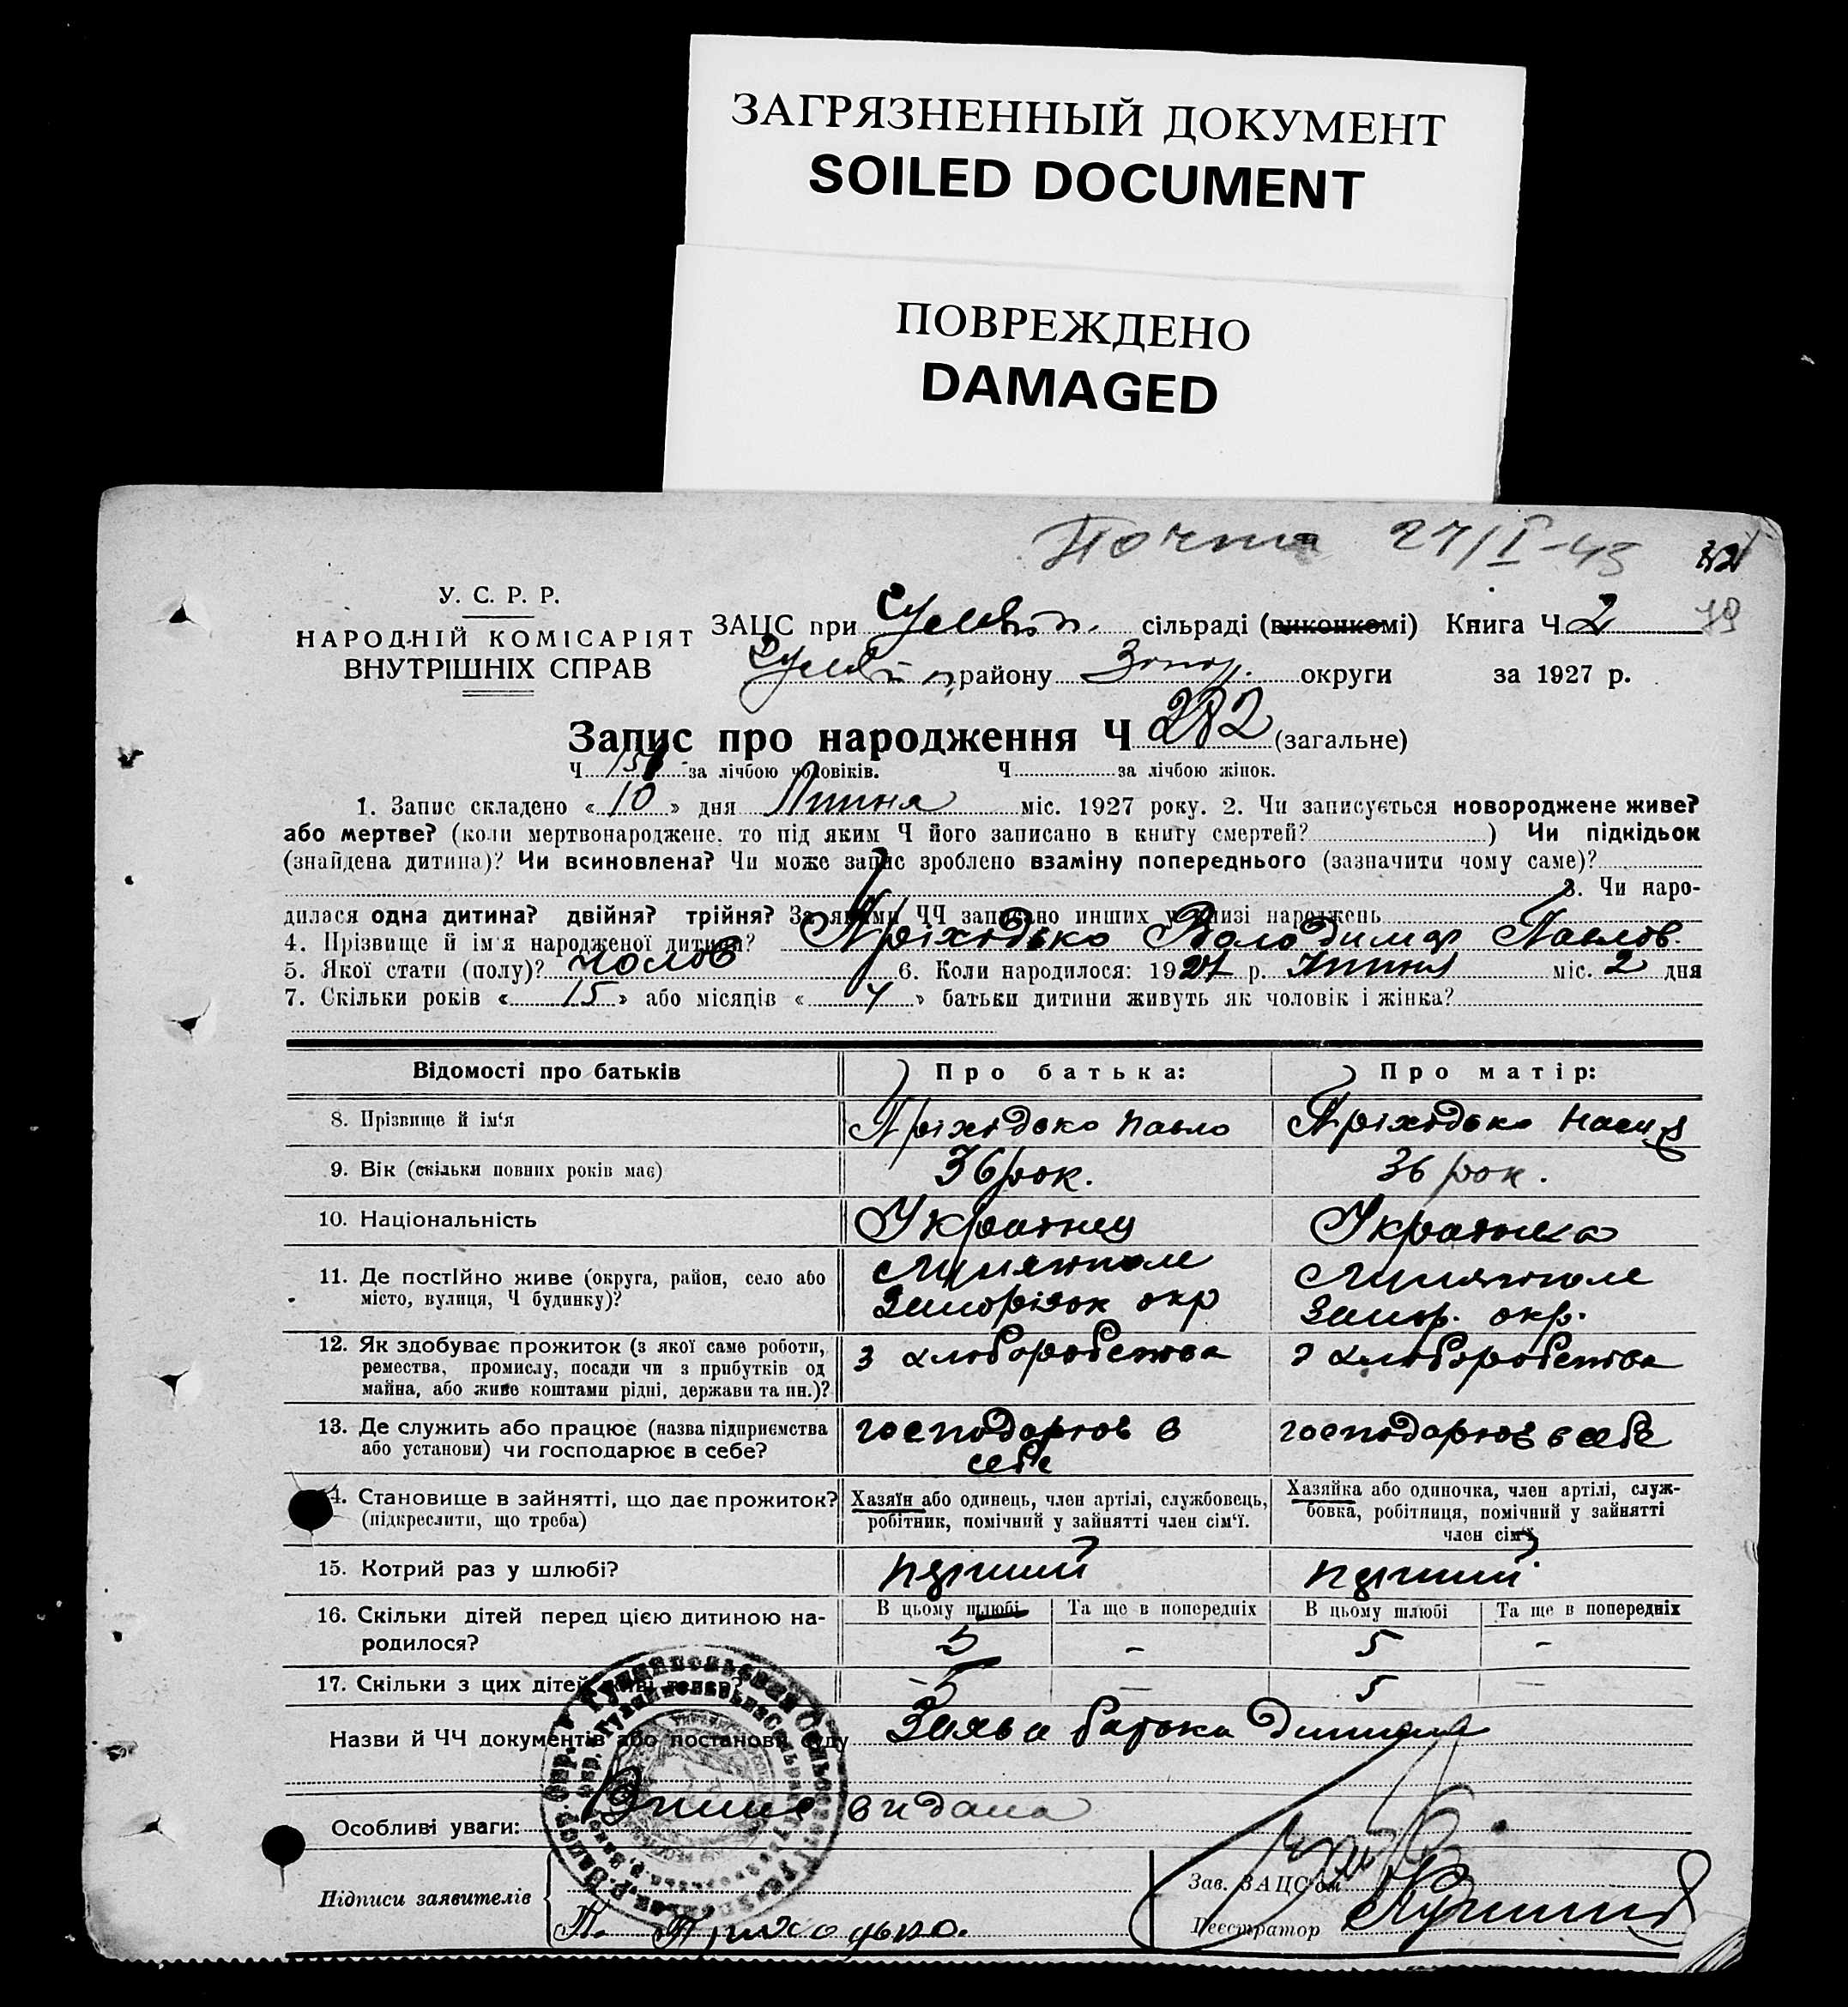 ЗАГРЯЗНЕННЫЙ ДОКУМЕНТ
SOILED DOCUMENT
ПОВРЕЖДЕНО
DAMAGED
27/I-43
У. С. Р. Р.
НАРОДНІЙ КОМІСАРІЯТ
ВНУТРІШНІХ СПРАВ
ЗАЦС при сільраді (виконкомі) Книга Ч 2
району Запор. округи за 1927 р.
Запис про народження Ч 282 (загальне)
Ч за лічбою чоловіків. Ч за лічбою жінок.
1. Запис складено «10» дня Липня міс. 1927 року. 2. Чи записується новороджене живе?
або мертве? (коли мертвонароджене, то під яким Ч його записано в книгу смертей? ) Чи підкідьок
(знайдена дитина)? Чи всиновлена? Чи може запис зроблено взаміну попереднього (зазначити чому саме)?
3. Чи наро-
дилася одна дитина? двійня? трійня? За якими ЧЧ записано инших у низі народжень
4. Прізвище й ім'я народженої дитини? Пріходько Володимир Павлов.
5. Якої стати (полу)? чолов 6. Коли народилося: 1927 р. Липня міс. 2 дня
7. Скільки років «15» або місяців « » батьки дитини живуть як чоловік і жінка?
Відомості про батьків Про батька: Про матір:
8. Прізвище й ім'я Пріходько Павло Пріходько
9. Вік (скільки повних років має) 36 рок. 36 рок.
10. Національність Українец Українка
11. Де постійно живе (округа, район, село або
місто, вулиця, Ч будинку)?
окр
Запор. окр.
12. Як здобуває прожиток (з якої саме роботи, з хліборобства з хліборобства
ремества, промислу, посади чи з прибутків од
майна, або живе коштами рідні, держави та ин.)?
13. Де служить або працює (назва підприємства господарює в господарює в себе
або установи) чи господарює в себе? себе
14. Становище в зайнятті, що дає прожиток? Хазяїн або одинець, член артілі, службовець, Хазяйка або одиночка, член артілі, служ-
(підкреслити, що треба) робітник, помічний у зайнятті член сім'ї. бовка, робітниця, помічний у зайнятті
член сім'ї
15. Котрий раз у шлюбі? перший перший
16. Скільки дітей перед цією дитиною на- В цьому шлюбі Та ще в попередніх В цьому шлюбі Та ще в попередніх
родилося? 5 - 5 -
17. Скільки з цих дітей живі тепер? 5 - 5 -
Назви й ЧЧ документів або постанови суду Заява батька дитини
Особливі уваги: Випис видана
Зав. ЗАЦС'ом
Підписи заявителів
П. Приходько. Реєстратор